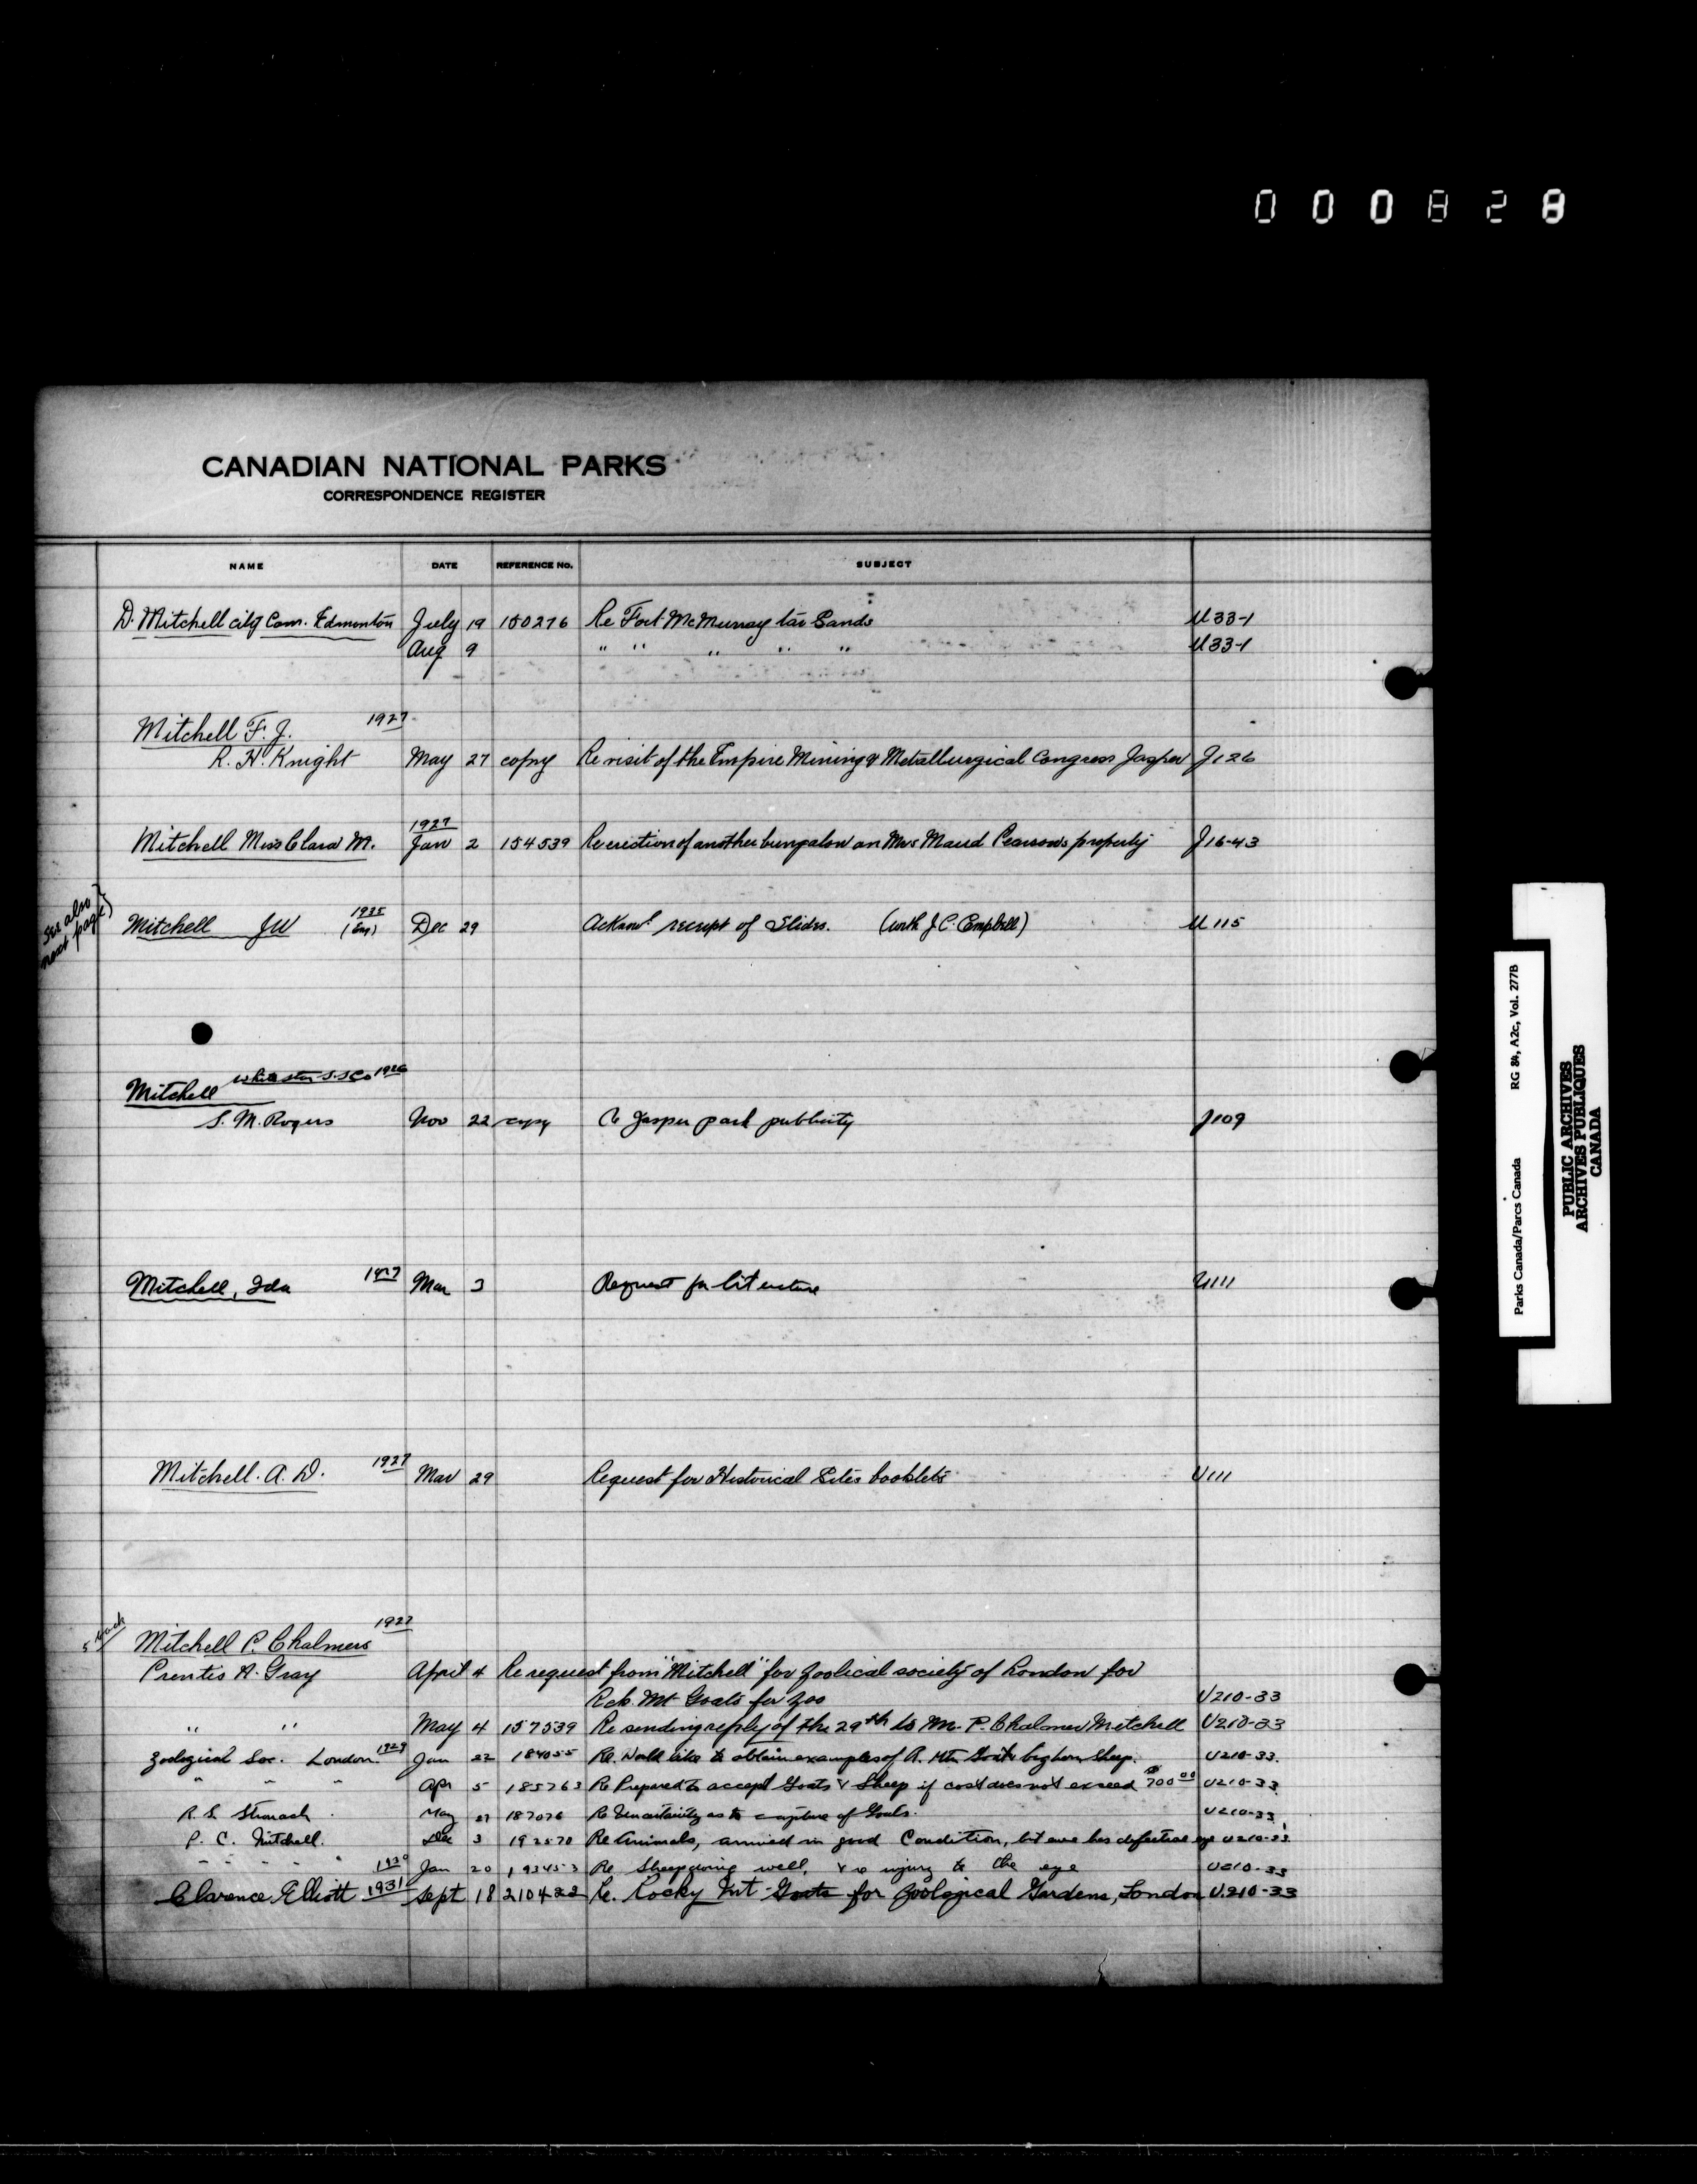 000828
CANADIAN NATIONAL PARKS
CORRESPONDENCE REGISTER
NAME DATE REFERENCE No. SUBJECT
D. Mitchell city Com. Edmonton July 19 150276 Re Fort McMurray tar Sands U33-1
Aug 9 " " " " " U33-1
Mitchell F. J. 1927
R. H. Knight May 27 copy Re visit of the Empire Mining & Metallurgical Congress Jasper J126
1927
Mitchell Miss Clara M. Jan 2 154539 Re erection of another bungalow on Mrs Maud Pearson's property J16-43
See also next page)
Mitchell JW 1935 Dec 29 Acknowl receipt of Slides. (with J.C. Campbell) U115
Mitchell White Star S.S Co 1926
S. M. Rogers Nov 22 copy Re Jasper park publicity J109
Mitchell, Ida 1927 Mar 3 Request for literature U111
Mitchell. A. D. 1927 Mar 29 Request for Historical Sites booklets U111
Mitchell P. Chalmers 1927
Prentis N. Gray April 4 Re request from "Mitchell" for zoolical society of London for
Rck. Mt Goats for zoo U210-33
" " May 4 157539 Re sending reply of the 29th to Mr. P. Chalmer Mitchell U210-33
Zoological Soc. London. 1929 Jan 22 184055 Re. Would like to obtain examples of R. Mtn Goats bighorn Sheep. U210-33.
" " " Apr 5 185763 Re Prepared to accept Goats & Sheep if cost does not exceed $700.00 U210-33
R. S. Stronach May 27 187076 Re Uncertainty as to capture of Goats. U210-33
P. C. Mitchell. Dec 3 192570 Re Animals, arrived in good Condition, but ewe has defective eye U210-33
" " " " 1930 Jan 20 193453 Re Sheep doing well, & re injury to the eye U210-33
Clarence Elliott 1931 Sept 18 210422 Re. Rocky Mt Goats for Zoological Gardens, London U.210-33
Parks Canada/Parcs Canada RG 84, A2c, Vol. 2778
PUBLIC ARCHIVES
ARCHIVES PUBLIQUES
CANADA